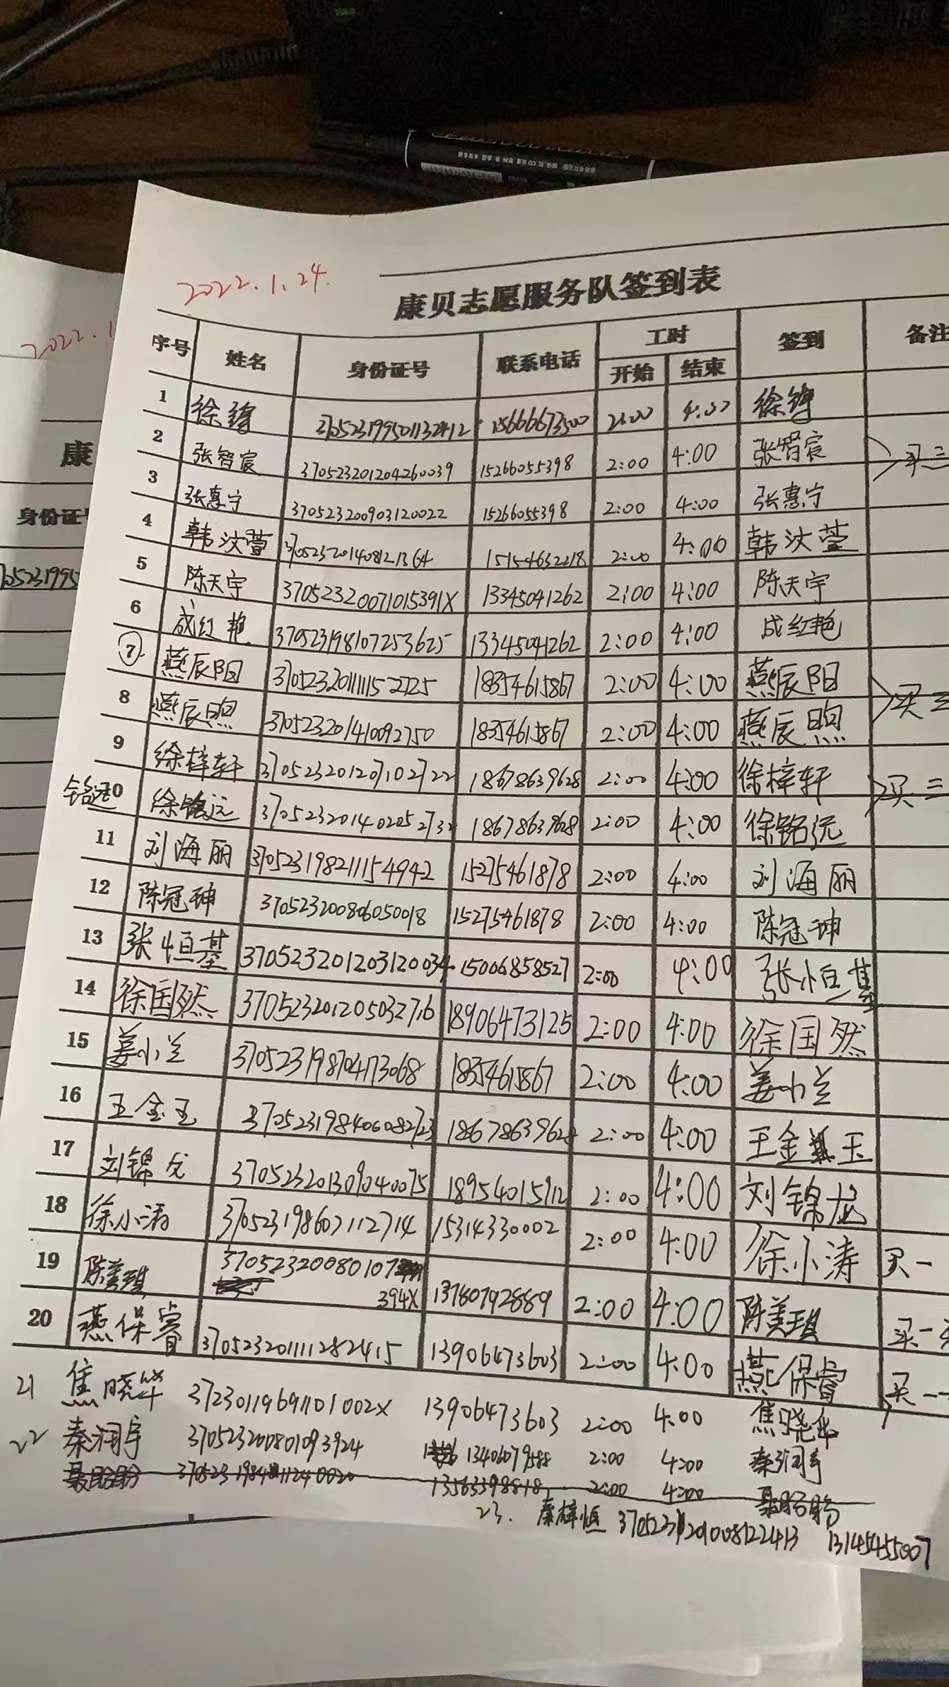 2022.1.24.
康贝志愿服务队签到表
序号 姓名 身份证号 联系电话 工时 开始 结束 签到 备注
1 徐 15666673500 2:00 4:00 徐
2 张智宸 370523201204260039 15266055398 2:00 4:00 张智宸 买三
3 张惠宁 370523200903120022 15266055398 2:00 4:00 张惠宁
4 韩汶萱 15154632218 2:00 4:00 韩汶萱
5 陈天宇 37052320071015391X 13345041262 2:00 4:00 陈天宇
6 成红艳 370523198107253625 13345041262 2:00 4:00 成红艳
7 燕辰阳 370523201111152725 18354615867 2:00 4:00 燕辰阳 买三
8 燕辰煦 370523201410092750 18354615867 2:00 4:00 燕辰煦
9 徐梓轩 370523201207102722 18678639628 2:00 4:00 徐梓轩 买三
铭远 0 徐铭远 18678639628 2:00 4:00 徐铭远
11 刘海丽 370523198211154942 15275461878 2:00 4:00 刘海丽
12 陈冠珅 370523200806050018 15275461878 2:00 4:00 陈冠珅
13 张恒基 370523201203120034 15006858527 2:00 4:00 张恒基
14 徐国然 370523201205032716 18906473125 2:00 4:00 徐国然
15 姜小兰 370523198704173068 18354615867 2:00 4:00 姜小兰
16 王金玉 370523198406082723 18678639628 2:00 4:00 王金玉
17 刘锦龙 370523201309040075 18954015912 2:00 4:00 刘锦龙
18 徐小涛 370523198607112714 15314330002 2:00 4:00 徐小涛 买一
19 陈美琪 37052320080107
394X 2:00 4:00 陈美琪 买一
20 燕保睿 370523201111282415 13906473603 2:00 4:00 燕保睿 买一
21 焦晓华 37230119691101002X 13906473603 2:00 4:00 焦晓华
22 秦润宇 370523200801093924 13406079588 2:00 4:00 秦润宇
2:00 4:00
23. 秦梓恒 370523201008122413 13145455007
2022.1
康
身份证